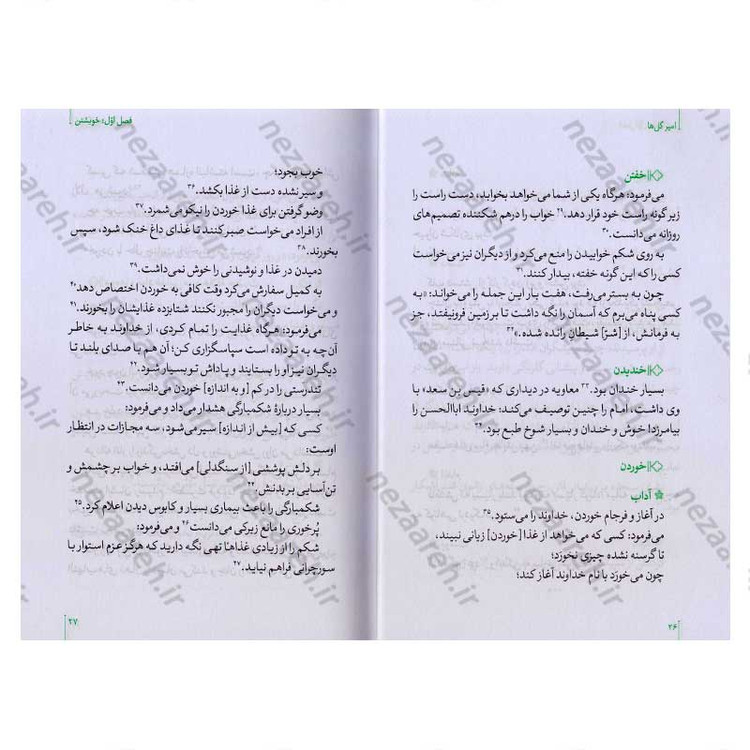 امیر گل‌ها
خفتن
می‌فرمود: هرگاه یکی از شما می‌خواهد بخوابد، دست راست را
زیر گونه راست خود قرار دهد.۲۹ خواب را درهم شکننده تصمیم‌های
روزانه می‌دانست.۳۰
به روی شکم خوابیدن را منع می‌کرد و از دیگران نیز می‌خواست
کسی را که این گونه خفته، بیدار کنند.۳۱
چون به بستر می‌رفت، هفت بار این جمله را می‌خواند: «به
کسی پناه می‌برم که آسمان را نگه داشت تا بر زمین فرونیفتد، جز
به فرمانش، از [شرّ] شیطانِ رانده شده.»۳۲
خندیدن
بسیار خندان بود.۳۳ معاویه در دیداری که «قیس بن سعد» با
وی داشت، امام را چنین توصیف می‌کند: خداوند اباالحسن را
بیامرزد! خوش و خندان و بسیار شوخ طبع بود.۳۴
خوردن
آداب
در آغاز و فرجام خوردن، خداوند را می‌ستود.۳۵
می‌فرمود: کسی که می‌خواهد از غذا [خوردن] زیانی نبیند،
تا گرسنه نشده چیزی نخورَد؛
چون می‌خورَد با نام خداوند آغاز کند؛
۲۶
فصل اوّل؛ خویشتن
خوب بجود؛
و سیر نشده دست از غذا بکشد.۳۶
وضو گرفتن برای غذا خوردن را نیکو می‌شمرد.۳۷
از افراد می‌خواست صبر کنند تا غذای داغ خنک شود، سپس
بخورند.۳۸
دمیدن در غذا و نوشیدنی را خوش نمی‌داشت.۳۹
به کمیل سفارش می‌کرد وقت کافی به خوردن اختصاص دهد۴۰
و می‌خواست دیگران را مجبور نکنند شتابزده غذایشان را بخورند.۴۱
می‌فرمود: هرگاه غذایت را تمام کردی، از خداوند به خاطر
آن چه به تو داده است سپاسگزاری کن؛ آن هم با صدای بلند تا
دیگران نیز او را بستایند و پاداش تو بسیار شود.۴۲
تندرستی را در کم [و به اندازه] خوردن می‌دانست.۴۳
بسیار دربارهٔ شکمبارگی هشدار می‌داد و می‌فرمود:
کسی که [بیش از اندازه] سیر می‌شود، سه مجازات در انتظار
اوست:
بر دلش پوششی [از سنگدلی] می‌افتد، و خواب بر چشمش و
تن‌آسایی بر بدنش.۴۴
شکمبارگی را باعث بیماری بسیار و کابوس دیدن اعلام کرد.۴۵
پُرخوری را مانع زیرکی می‌دانست۴۶ و می‌فرمود:
شکم را از زیادی غذاها تهی نگه دارید که هرگز عزم استوار با
سورچرانی فراهم نیاید.۴۷
۲۷
nezaareh.ir